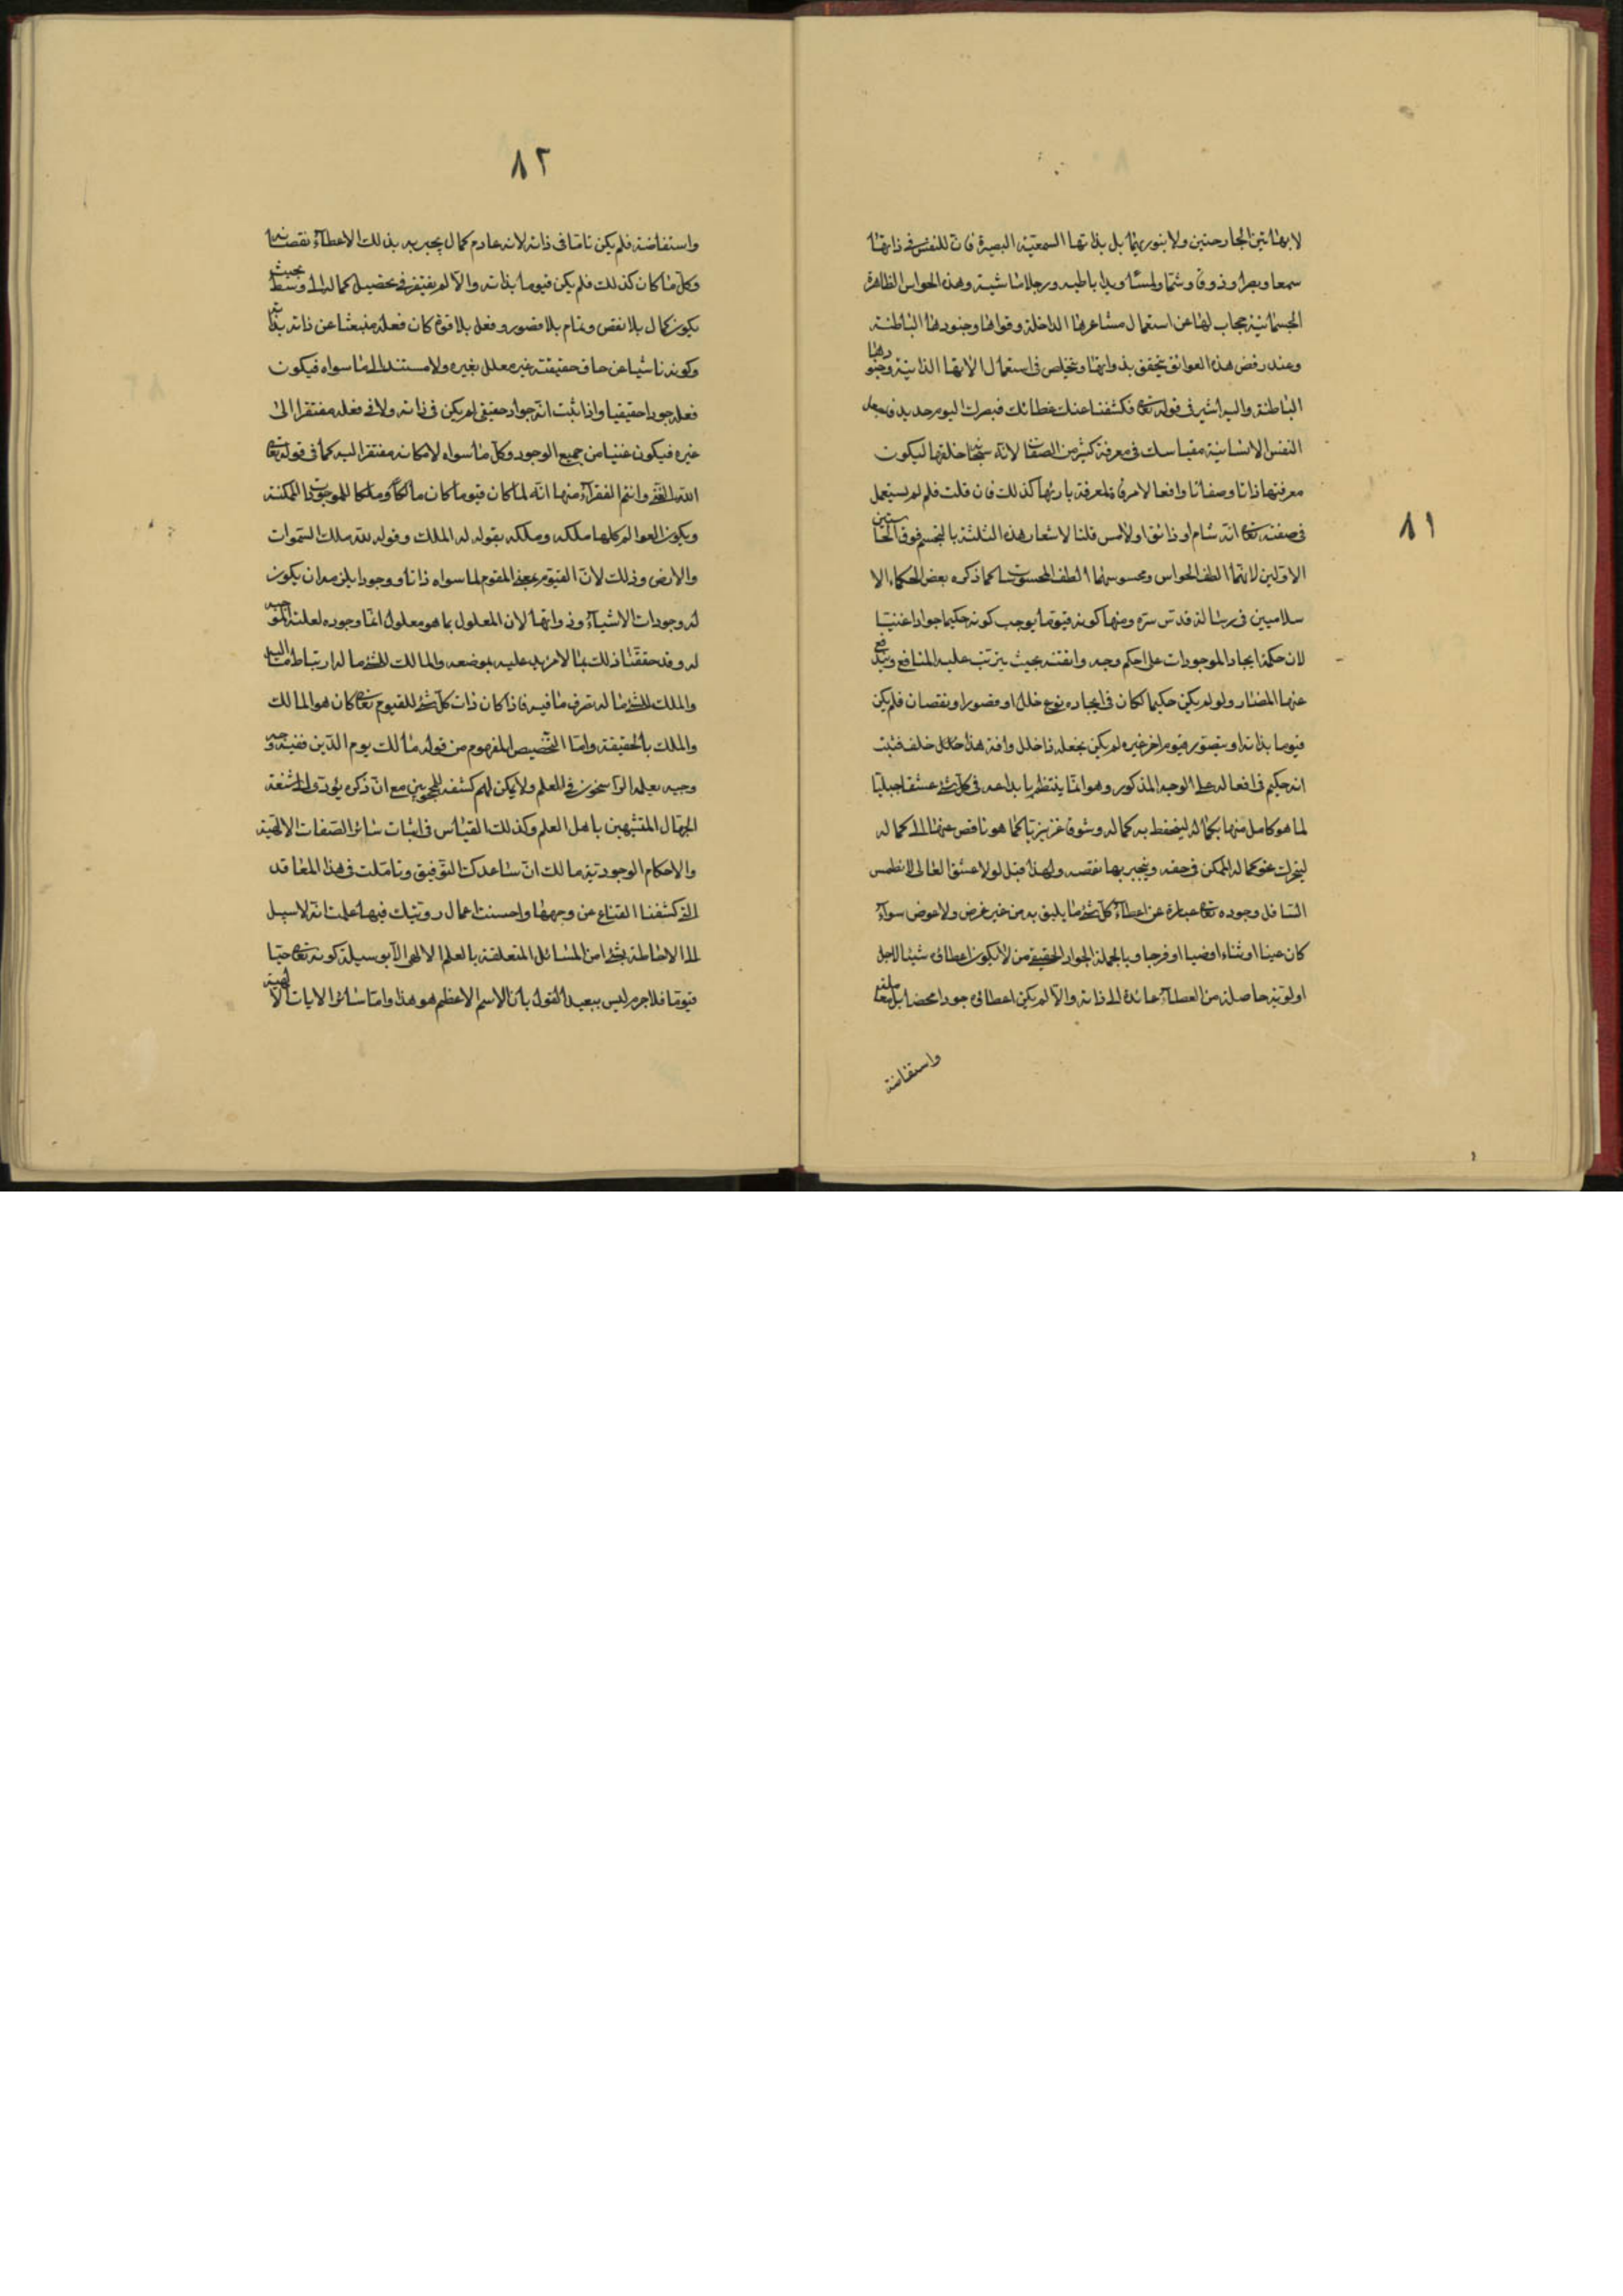 ٨١
لا بهاتين الجارحتين ولا بنوريهما بل بذاتها السمعية البصيرة فان للنفس في ذاتها
سمعا وبصرا وذوقا وشما ولمسا ويدا باطشة ورجلا ماشية وهذه الحواس الظاهرة
الجسمانية حجاب لها عن استعمال مشاعرها الداخلة وقواها وجنودها الباطنة
وعند رفض هذه العوائق تتحقق بذواتها وتتخلص في استعمال الاتها الذاتية وجنودها
الباطنة واليه اشير في قوله تعالى فكشفنا عنك غطائك فبصرك اليوم حديد فاجعل
النفس الانسانية مقياسك في معرفة كثير من الصفات لانه تعالى خلقها ليكون
معرفتها ذاتا وصفاتا وافعالا مرقاة لمعرفة باريها كذلك فان قلت فلم لم يستعمل
في صفته تعالى انه شام او ذائق او لامس قلنا لاشعار هذه الثلثة بالتجسم فوق الحاستين
الاولين لانهما الطف الحواس ومحسوسهما الطف المحسوسات كما ذكره بعض الحكماء الا
سلاميين في رسالة قدس سره ومنها كونه قيوما يوجب كونه حكيما جوادا غنيا
لان حكمة ايجاد الموجودات على احكم وجه واتقنه بحيث يترتب عليه المنافع ويندفع
عنها المضار ولو لم يكن حكيما لكان في ايجاده نوع خلل او قصور او نقصان فلم يكن
قيوما بذاته او يتصور قيوم اخر غيره لم يكن بفعله ذا خلل وافة هذا خلف فثبت
انه حكيم في افعاله على الوجه المذكور وهو انما ينتظم بابداعه في كل شئ عشقا جبليا
لما هو كامل منها بكماله ليحفظ به كماله وشوقا غريزيا لما هو ناقص عنها الى كماله
ليتحرك نحو كماله الممكن في حقه وينجبر بها نقصه ولهذا قيل لولا عشق العالى لانطمس
السافل وجوده تعالى عبارة عن اعطاء كل شئ ما يليق به من غير غرض ولا عوض سواء
كان عينا او ثناء او صيتا او فرحا وبالجملة الجواد الحقيقي من لا يكون اعطائه شيئا لاجل
اولوية حاصلة من العطاء عائدة الى ذاته والا لم يكن اعطائه جودا محضا بل معاملة
واستفاضة
٨٢
واستفاضة فلم يكن تاما في ذاته لانه عادم كمال يجبر به بذلك الاعطاء نقصانه
وكل ما كان كذلك فلم يكن قيوما بذاته والا لم يفتقر في تحصيل كماله الى وسط بحيث
يكون كمال بلا نقص وتمام بلا قصور وفعل بلا قوة كان فعله منبعثا عن ذاته بذاته
وكونه ناشيا عن حاق حقيقته غير معلل بغيره ولا مستند الى ما سواه فيكون
فعله جودا حقيقيا واذا ثبت انه جواد حقيقي لم يكن في ذاته ولا في فعله مفتقرا الى
غيره فيكون غنيا من جميع الوجوه وكل ما سواه لامكانه مفتقرا اليه كما في قوله تعالى
الله الغني وانتم الفقراء ومنها انه لما كان قيوما كان مالكا وملكا للموجودات الممكنة
ويكون العوالم كلها ملكه وملكه بقوله له الملك وقوله لله ملك السموات
والارض وذلك لان القيوم بمعنى المقوم لما سواه ذاتا ووجودا يلزمه ان يكون
له وجودات الاشياء وذواتها لان المعلول بما هو معلول انما وجوده لعلته الموجبة
له وقد حققنا ذلك بما لا مزيد عليه بموضعه والمالك للشئ ما له ارتباط ما اليه
والملك للشئ ما له تصرف ما فيه فاذا كان ذات كل شئ للقيوم تعالى كان هو المالك
والملك بالحقيقة واما التخصيص المفهوم من قوله مالك يوم الدين ففيه وجه
وجيه يعلمه الراسخون في العلم ولا يمكن لهم كشفه للمحجوبين مع ان ذكره يؤدى الى شنعة
الجهال المتشبهين باهل العلم وكذلك القياس في اثبات سائر الصفات الالهية
والاحكام الوجودية مالك ان ساعدك التوفيق وتاملت في هذا المعاقد
التي كشفنا القناع عن وجهها واحسنت اعمال رويتك فيها علمت انه لا سبيل
الى الاحاطة بشئ من المسائل المتعلقة بالعلم الالهى الا بوسيلة كونه تعالى حيا
قيوما فلا جرم ليس ببعيد القول بان الاسم الاعظم هو هذا واما سائر الايات الالهية